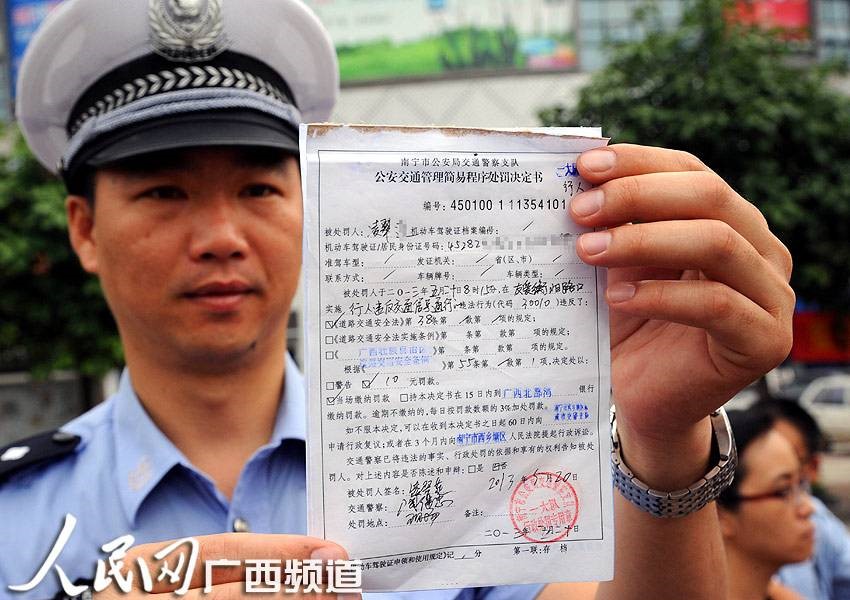 南宁市公安局交通警察支队
公安交通管理简易程序处罚决定书
行人
编号: 450100 1 11354101
被处罚人: 机动车驾驶证档案编号:
机动车驾驶证/居民身份证号码: 45282
准驾车型: 发证机关: 省(区、市)
联系方式: 车辆牌号: 车辆类型:
被处罚人于二〇一三年五月二十日8时150分,在 路口
实施 行人违反交通信号通行 违法行为(代码 30010 )违反了:
☑《道路交通安全法》第38条 款第 项的规定;
□《道路交通安全法实施条例》第 条第 款第 项的规定;
□《广西壮族自治区 》第 条第 款第 项的规定。
道路交通安全条例
根据《 》第55条 款第1项,决定处以:
□警告 ☑ 10 元罚款。
☑当场缴纳罚款 □持本决定书在15日内到广西北部湾 银行
缴纳罚款。逾期不缴纳的,每日按罚款数额的3%加处罚款。
如不服本决定,可以在收到本决定书之日起60日内向
申请行政复议;或者在3个月内向南宁市西乡塘区人民法院提起行政诉讼。
交通警察已将违法的事实、行政处罚的依据和享有的权利告知被处
罚人。对上述内容是否陈述和申辩:□是 ☑否
被处罚人签名: 2013年5月20日
交通警察:
处罚地点: 备注:
一大队
二〇一三年 月二十日
机动车驾驶证申领和使用规定》记 分 第一联:存档
人民网 广西频道